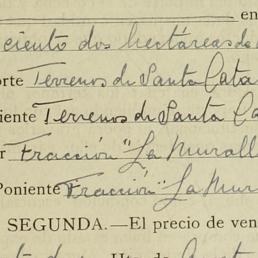 en
ciento dos hectáreas de
orte Terrenos de Santa Cata
iente Terrenos de Santa Ca
r Fracción "La Murall
Poniente Fracción "La Mur
SEGUNDA.—El precio de ven